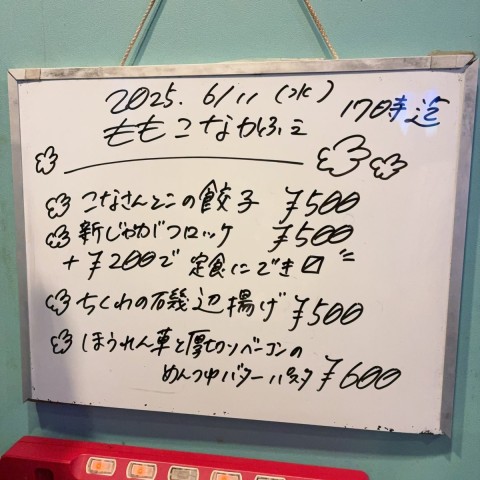 2025. 6/11 (水)
17時迄
ももこなかふぇ
こなさんとこの餃子 ¥500
新じゃがコロッケ ¥500
+¥200で 定食にできロ〃
ちくわの磯辺揚げ ¥500
ほうれん草と厚切りベーコンの
めんつゆバターパスタ ¥600